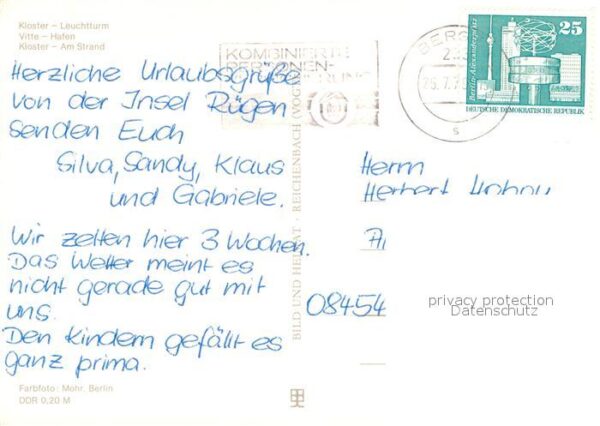 Kloster – Leuchtturm
Vitte – Hafen
Kloster – Am Strand
Herzliche Urlaubsgrüße
von der Insel Rügen
senden Euch
Silva, Sandy, Klaus
und Gabriele.
Wir zelten hier 3 Wochen.
Das Wetter meint es
nicht gerade gut mit
uns.
Den Kindern gefällt es
ganz prima.
Farbfoto: Mohr, Berlin
DDR 0,20 M
BILD UND HEIMAT · REICHENBACH (VOGTL)
KOMBINIERTE
PERSONEN-
BERG
25.7.7
s
25
Berlin-Alexanderplatz
DEUTSCHE DEMOKRATISCHE REPUBLIK
Herrn
Herbert
08454
privacy protection
Datenschutz